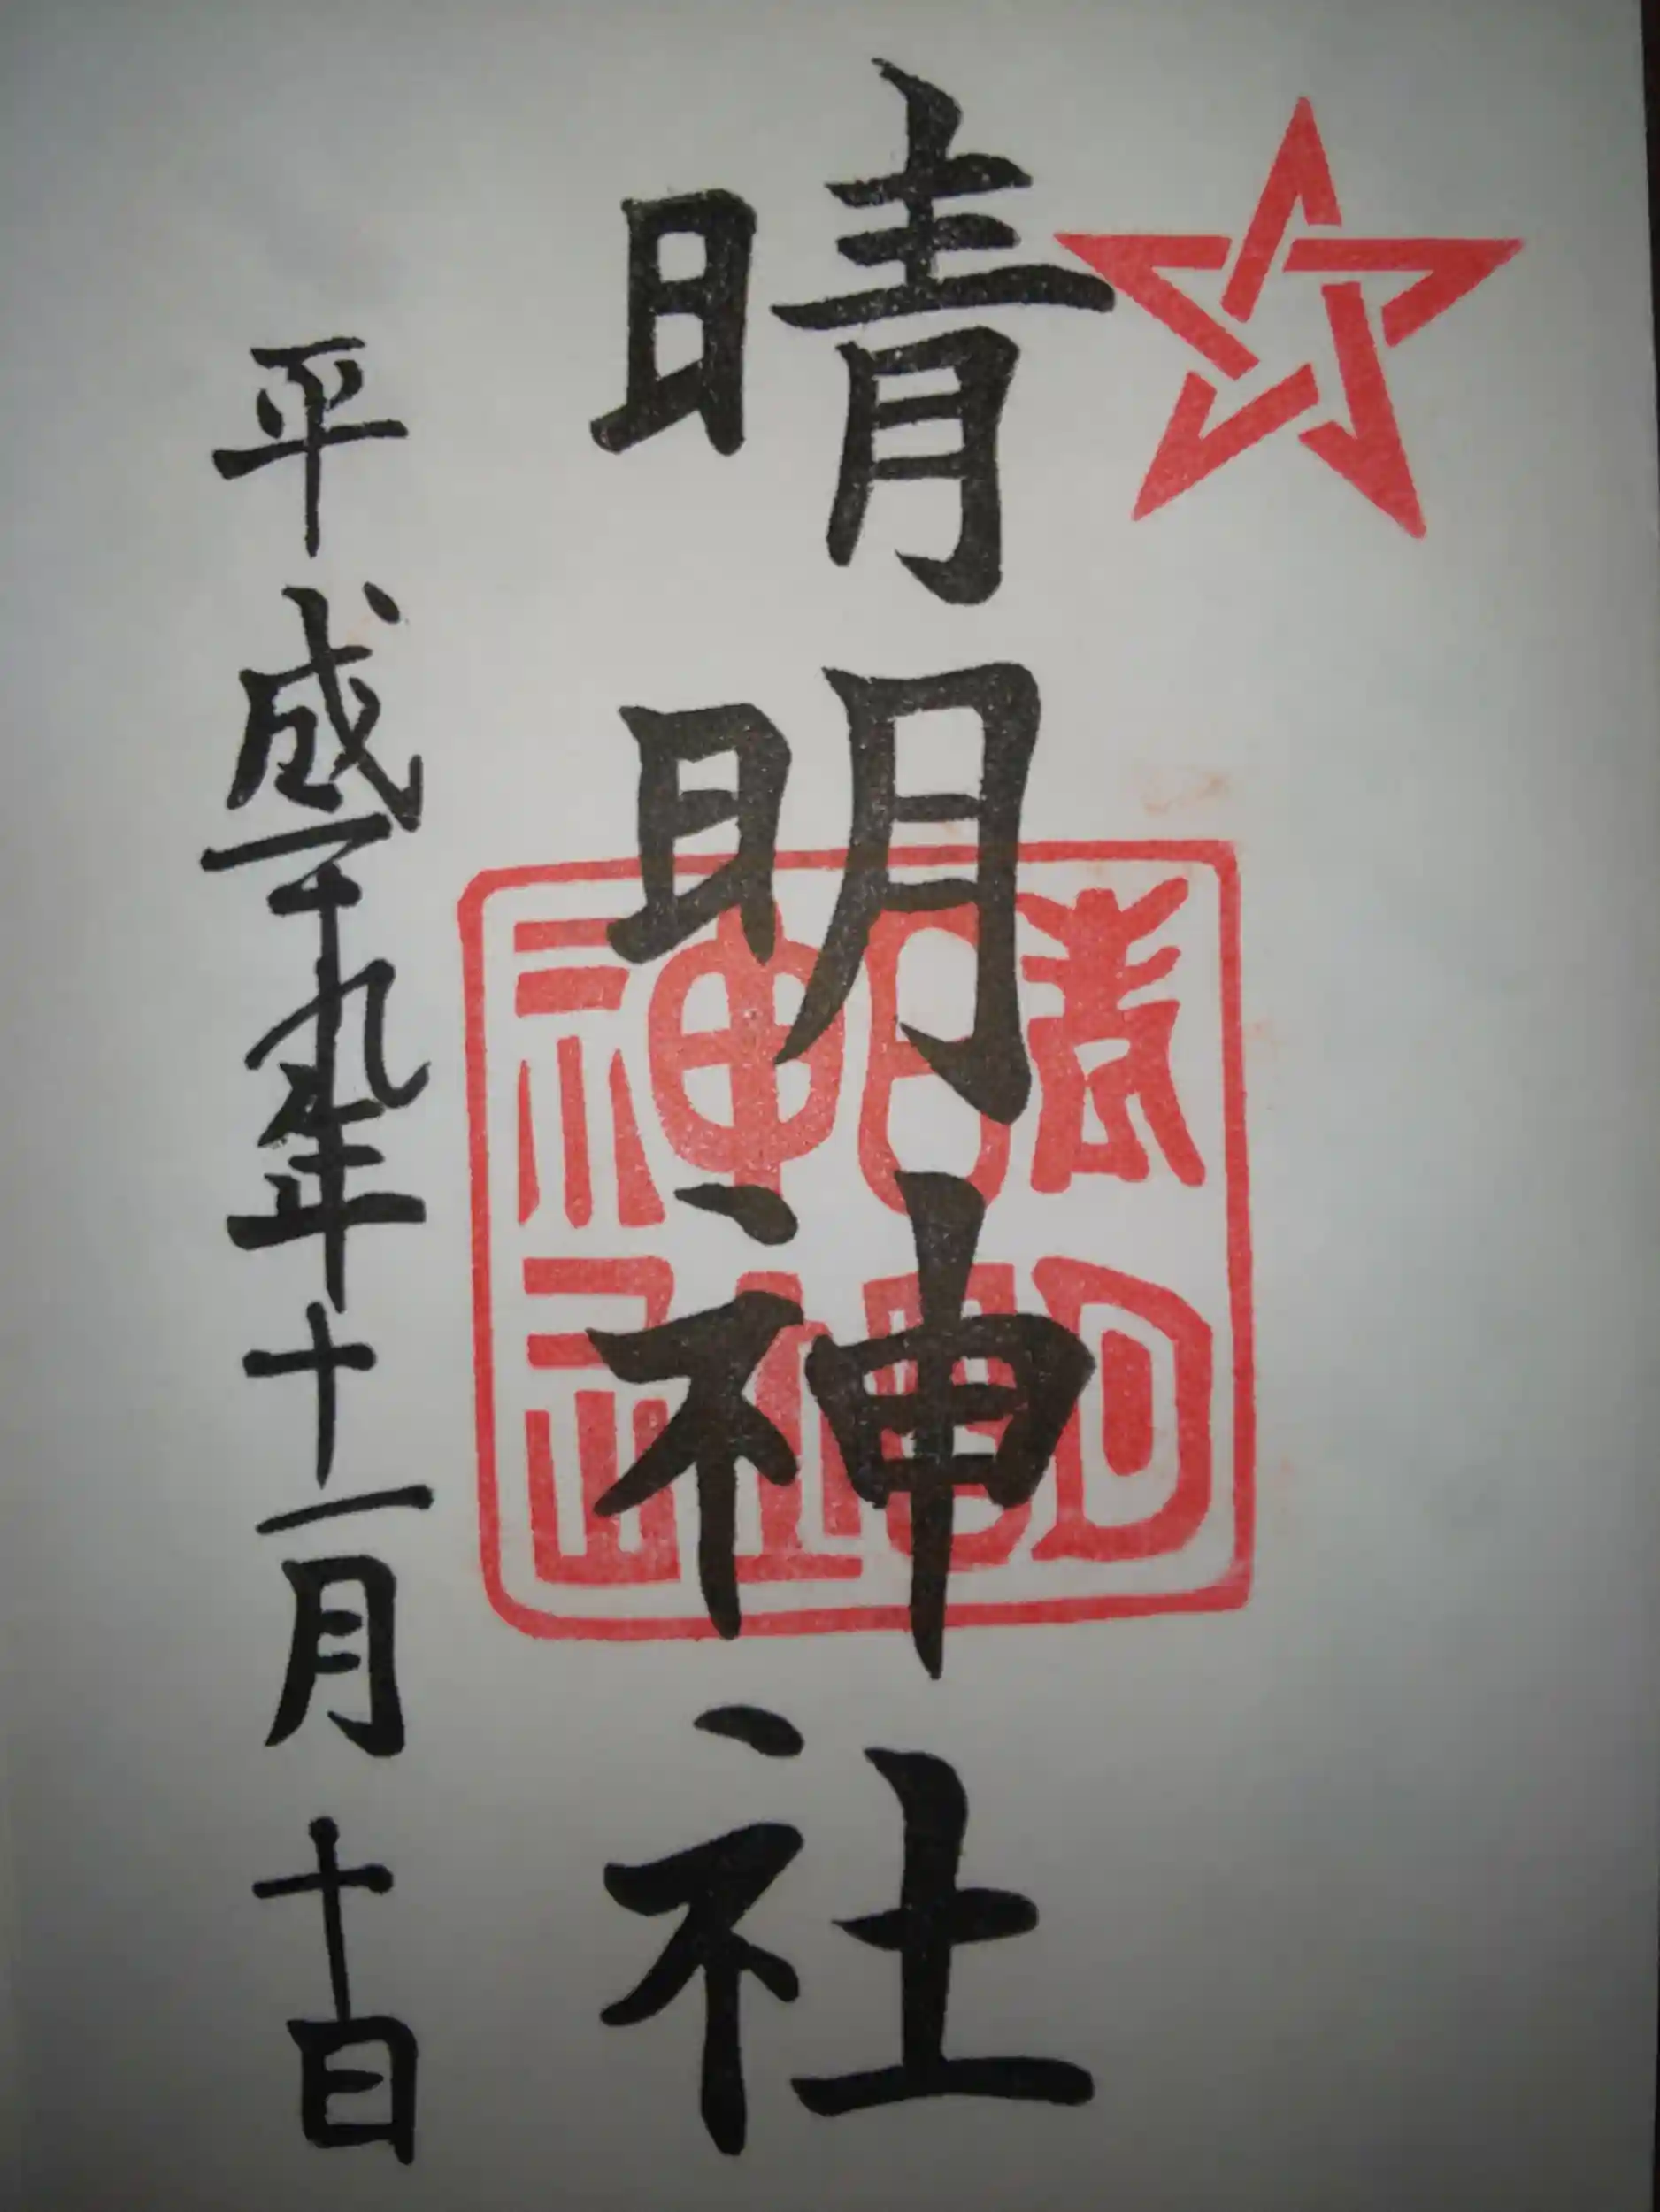 晴明神社
平成二十九年十一月十日
晴明
神社